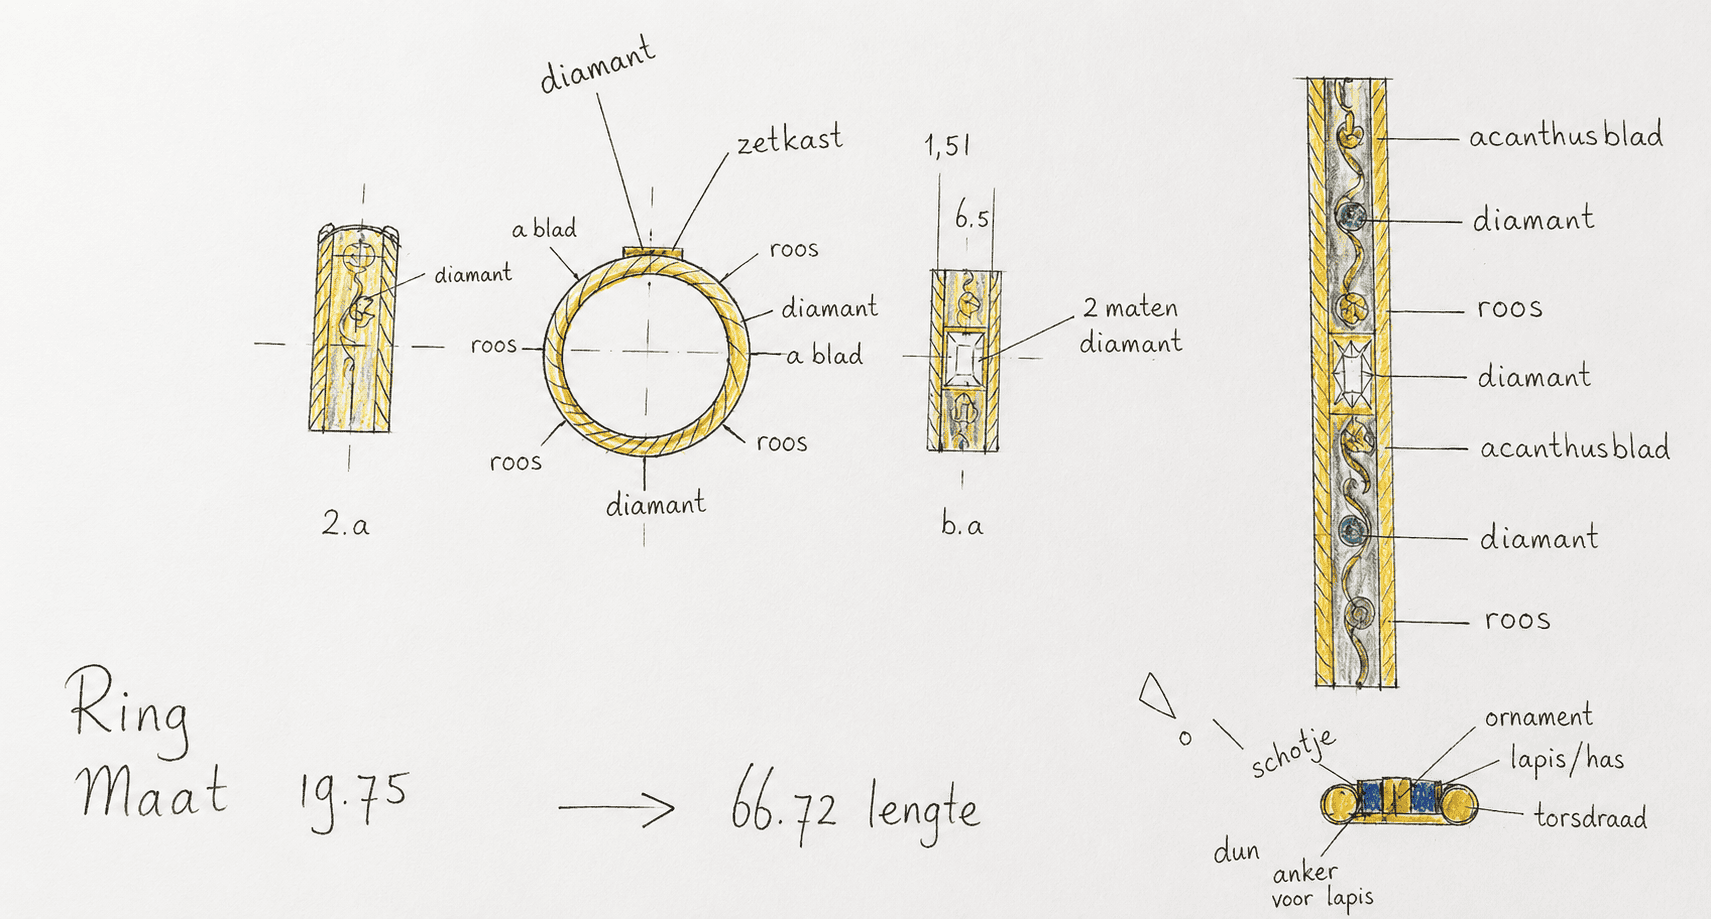 diamant
zetkast
a blad
roos
diamant
diamant
roos
a blad
roos
roos
diamant
2.a
1,51
6.5
2 maten
diamant
b.a
acanthusblad
diamant
roos
diamant
acanthusblad
diamant
roos
Ring
Maat 19.75 → 66.72 lengte
ornament
schotje
lapis/has
torsdraad
dun
anker
voor lapis